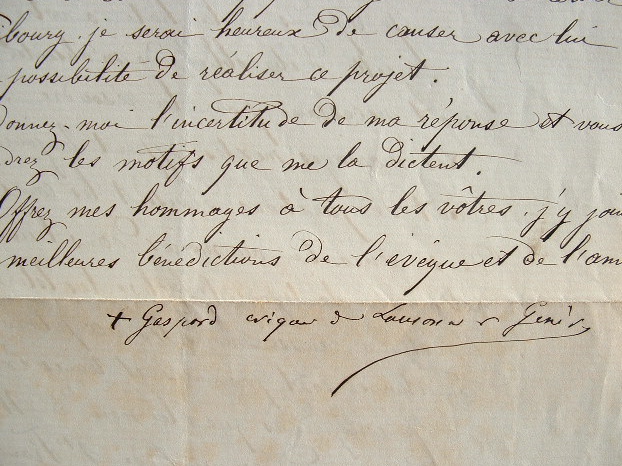 bourg. je serai heureux de causer avec lui
possibilité de réaliser ce projet.
donnez-moi l'incertitude de ma réponse et vous
drez les motifs que me la dictent.
Offrez mes hommages à tous les vôtres. j'y join
meilleures bénédictions de l'evêque et de l'am
+ Gaspard evêque de Lausanne & Genève